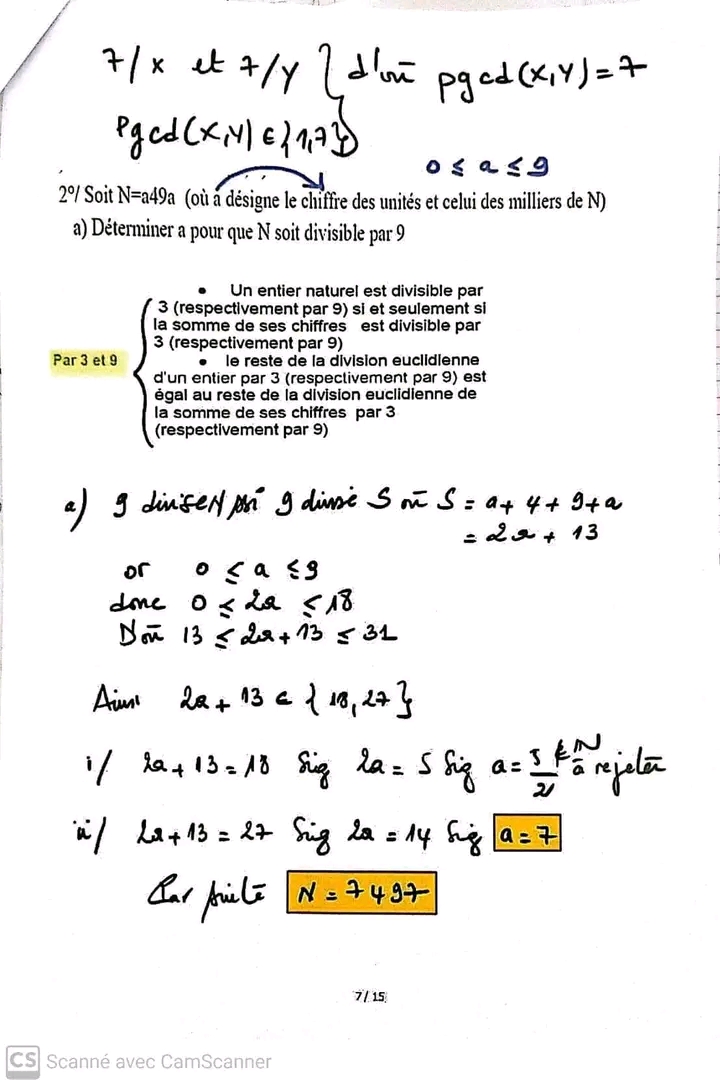 7/x et 7/y } d'où pgcd(x,y)=7
Pgcd(x,y) ∈ {1,7}
0 ≤ a ≤ 9
2°/ Soit N=a49a (où a désigne le chiffre des unités et celui des milliers de N)
a) Déterminer a pour que N soit divisible par 9
• Un entier naturel est divisible par
3 (respectivement par 9) si et seulement si
la somme de ses chiffres est divisible par
3 (respectivement par 9)
Par 3 et 9
• le reste de la division euclidienne
d'un entier par 3 (respectivement par 9) est
égal au reste de la division euclidienne de
la somme de ses chiffres par 3
(respectivement par 9)
a) 9 divise N ssi 9 divise S où S = a + 4 + 9 + a
= 2a + 13
or 0 ≤ a ≤ 9
donc 0 ≤ 2a ≤ 18
D'où 13 ≤ 2a + 13 ≤ 31
Ainsi 2a + 13 ∈ {18, 27}
i/ 2a + 13 = 18 Sig 2a = 5 Sig a = 5/2 ∉ ℕ à rejeter
ii/ 2a + 13 = 27 Sig 2a = 14 Sig a = 7
Par suite N = 7497
7/ 15
CS Scanné avec CamScanner